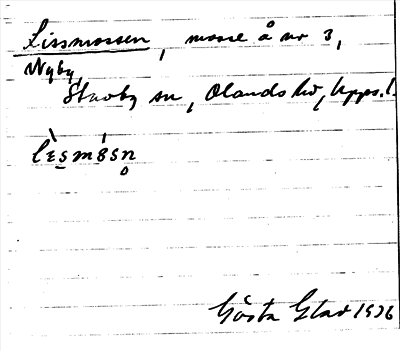 Lissmossen, mosse å nr 3,
Nyby,
Stavby sn, Olands hd, Upps. l.
lɛ̀smɞ́sn̥
Gösta Glad 1936